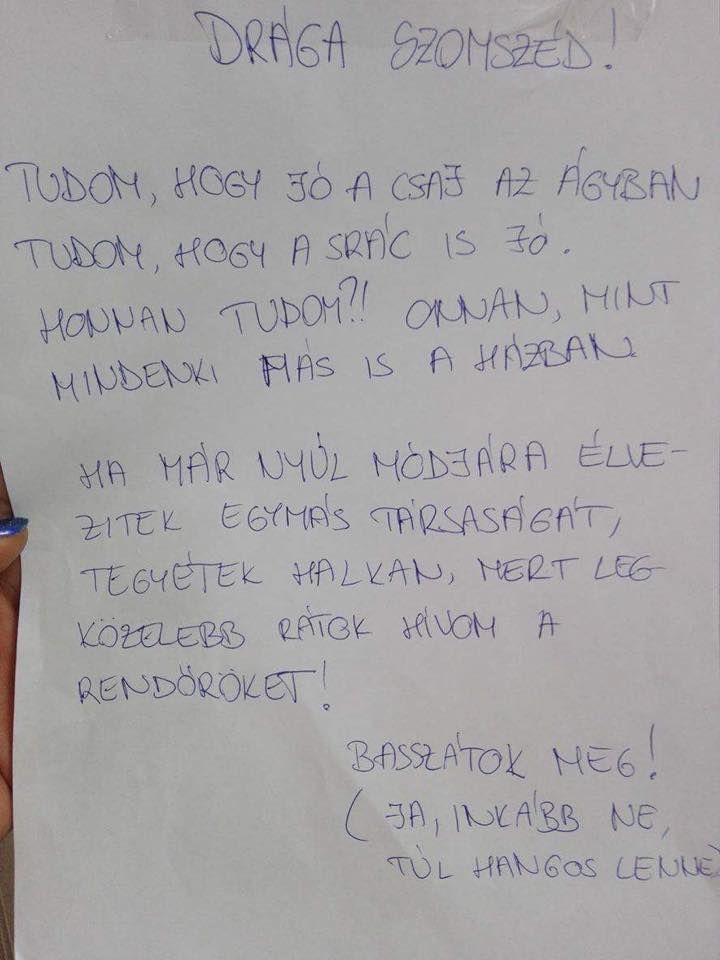 DRÁGA SZOMSZÉD!
TUDOM, HOGY JÓ A CSAJ AZ ÁGYBAN
TUDOM, HOGY A SRÁC IS JÓ.
HONNAN TUDOM?! ONNAN, MINT
MINDENKI MÁS IS A HÁZBAN.
HA MÁR NYÚL MÓDJÁRA ÉLVE-
ZITEK EGYMÁS TÁRSASÁGÁT,
TEGYÉTEK HALKAN, MERT LEG-
KÖZELEBB RÁTOK HÍVOM A
RENDŐRÖKET!
BASSZÁTOK MEG!
(JA, INKÁBB NE,
TÚL HANGOS LENNE)